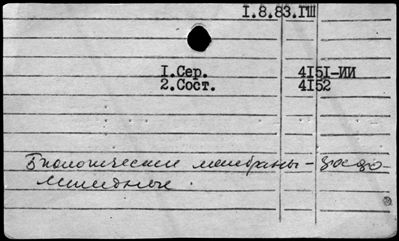 I.8.83.ГШ
I.Сер. 4I5I-ИИ
2.Сост. 4I52
Биологические мембраны - фосфо-
липидные